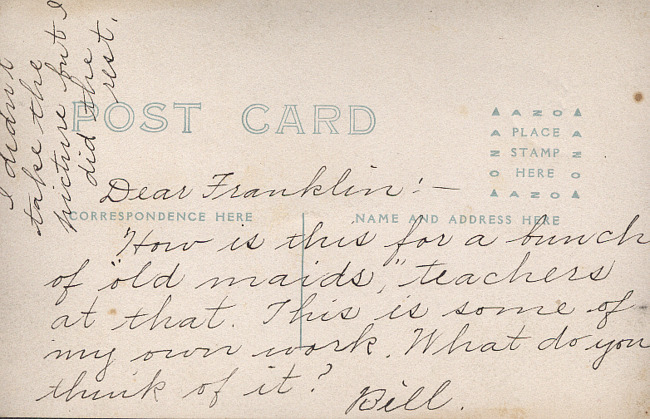 I didn't
take the
picture but I
did the
rest.
POST CARD
AZO
PLACE
STAMP
HERE
AZO
Dear Franklin:—
CORRESPONDENCE HERE
NAME AND ADDRESS HERE
How is this for a bunch
of "old maids," teachers
at that. This is some of
my own work. What do you
think of it?
Bill.